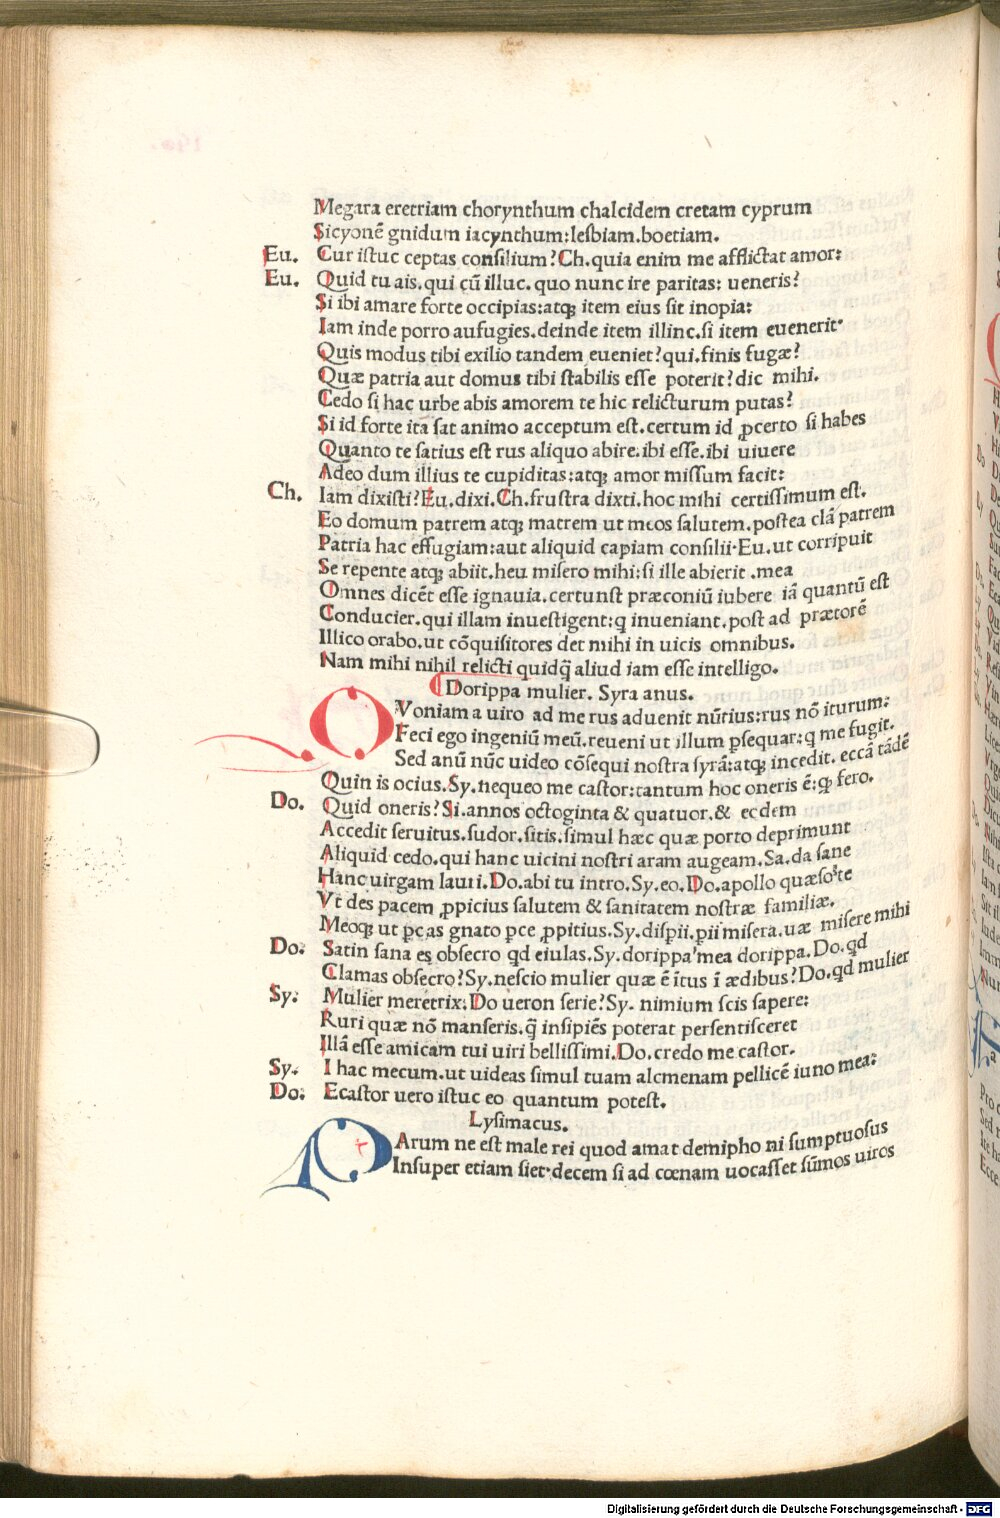 Megara eretriam chorynthum chalcidem cretam cyprum
Sicyonē gnidum iacynthum:lesbiam.boetiam.
Eu. Cur istuc ceptas consilium?Ch.quia enim me afflictat amor:
Eu. Quid tu ais.qui cū illuc.quo nunc ire paritas: ueneris?
Si ibi amare forte occipias:atq; item eius sit inopia:
Iam inde porro aufugies.deinde item illinc.si item euenerit·
Quis modus tibi exilio tandem eueniet?qui.finis fugæ?
Quæ patria aut domus tibi stabilis esse poterit?dic mihi.
Cedo si hac urbe abis amorem te hic relicturum putas?
Si id forte ita sat animo acceptum est.certum id ꝓcerto si habes
Quanto te satius est rus aliquo abire.ibi esse.ibi uiuere
Adeo dum illius te cupiditas:atq; amor missum facit:
Ch. Iam dixisti?Eu.dixi.Ch.frustra dixti.hoc mihi certissimum est.
Eo domum patrem atq; matrem ut meos salutem.postea clā patrem
Patria hac effugiam:aut aliquid capiam consilii·Eu.ut corripuit
Se repente atq; abiit.heu misero mihi:si ille abierit .mea
Omnes dicēt esse ignauia.certunst præconiū iubere iā quantū est
Conducier.qui illam inuestigent:q inueniant.post ad prætorē
Illico orabo.ut cōquisitores det mihi in uicis omnibus.
Nam mihi nihil relicti quidq̄ aliud iam esse intelligo.
Dorippa mulier. Syra anus.
QVoniam a uiro ad me rus aduenit nūtius:rus nō iturum:
Feci ego ingeniū meū.reueni ut illum ꝑsequar:q me fugit.
Sed anū nūc uideo cōsequi nostra syrā:atq; incedit. eccā tādē
Quin is ocius.Sy.nequeo me castor:tantum hoc oneris ē:qƺ fero.
Do. Quid oneris?Si.annos octoginta & quatuor.& eodem
Accedit seruitus.sudor.sitis.simul hæc quæ porto deprimunt
Aliquid cedo.qui hanc uicini nostri aram augeam.Sa.da sane
Hanc uirgam lauri.Do.abi tu intro.Sy.eo.Do.apollo quæso te
Vt des pacem ꝓpicius salutem & sanitatem nostræ familiæ.
Meoq; ut ꝑcas gnato ꝑce ꝓpitius.Sy.disꝑii.ꝑii misera.uæ misere mihi
Do: Satin sana es obsecro qd eiulas.Sy.dorippa mea dorippa.Do.qd
Clamas obsecro?Sy.nescio mulier quæ ē ītus ī ædibus?Do.qd mulier
Sy: Mulier meretrix:Do ueron serie?Sy. nimium scis sapere:
Ruri quæ nō manseris.q̄ insipiēs poterat persentiscere
Illā esse amicam tui uiri bellissimi.Do.credo me castor.
Sy. I hac mecum.ut uideas simul tuam alcmenam pellicē iuno mea:
Do: Ecastor uero istuc eo quantum potest.
Lysimacus.
PArum ne est male rei quod amat demipho ni sumptuosus
Insuper etiam siet·decem si ad cœnam uocasset sūmos uiros
Digitalisierung gefördert durch die Deutsche Forschungsgemeinschaft - DFG